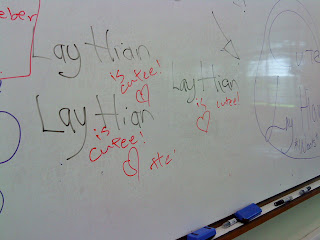 eber
Lay Hian
is
cutee!
Lay Hian
is
cutee!
Lay Hian
is
cutee!
Lay Hian